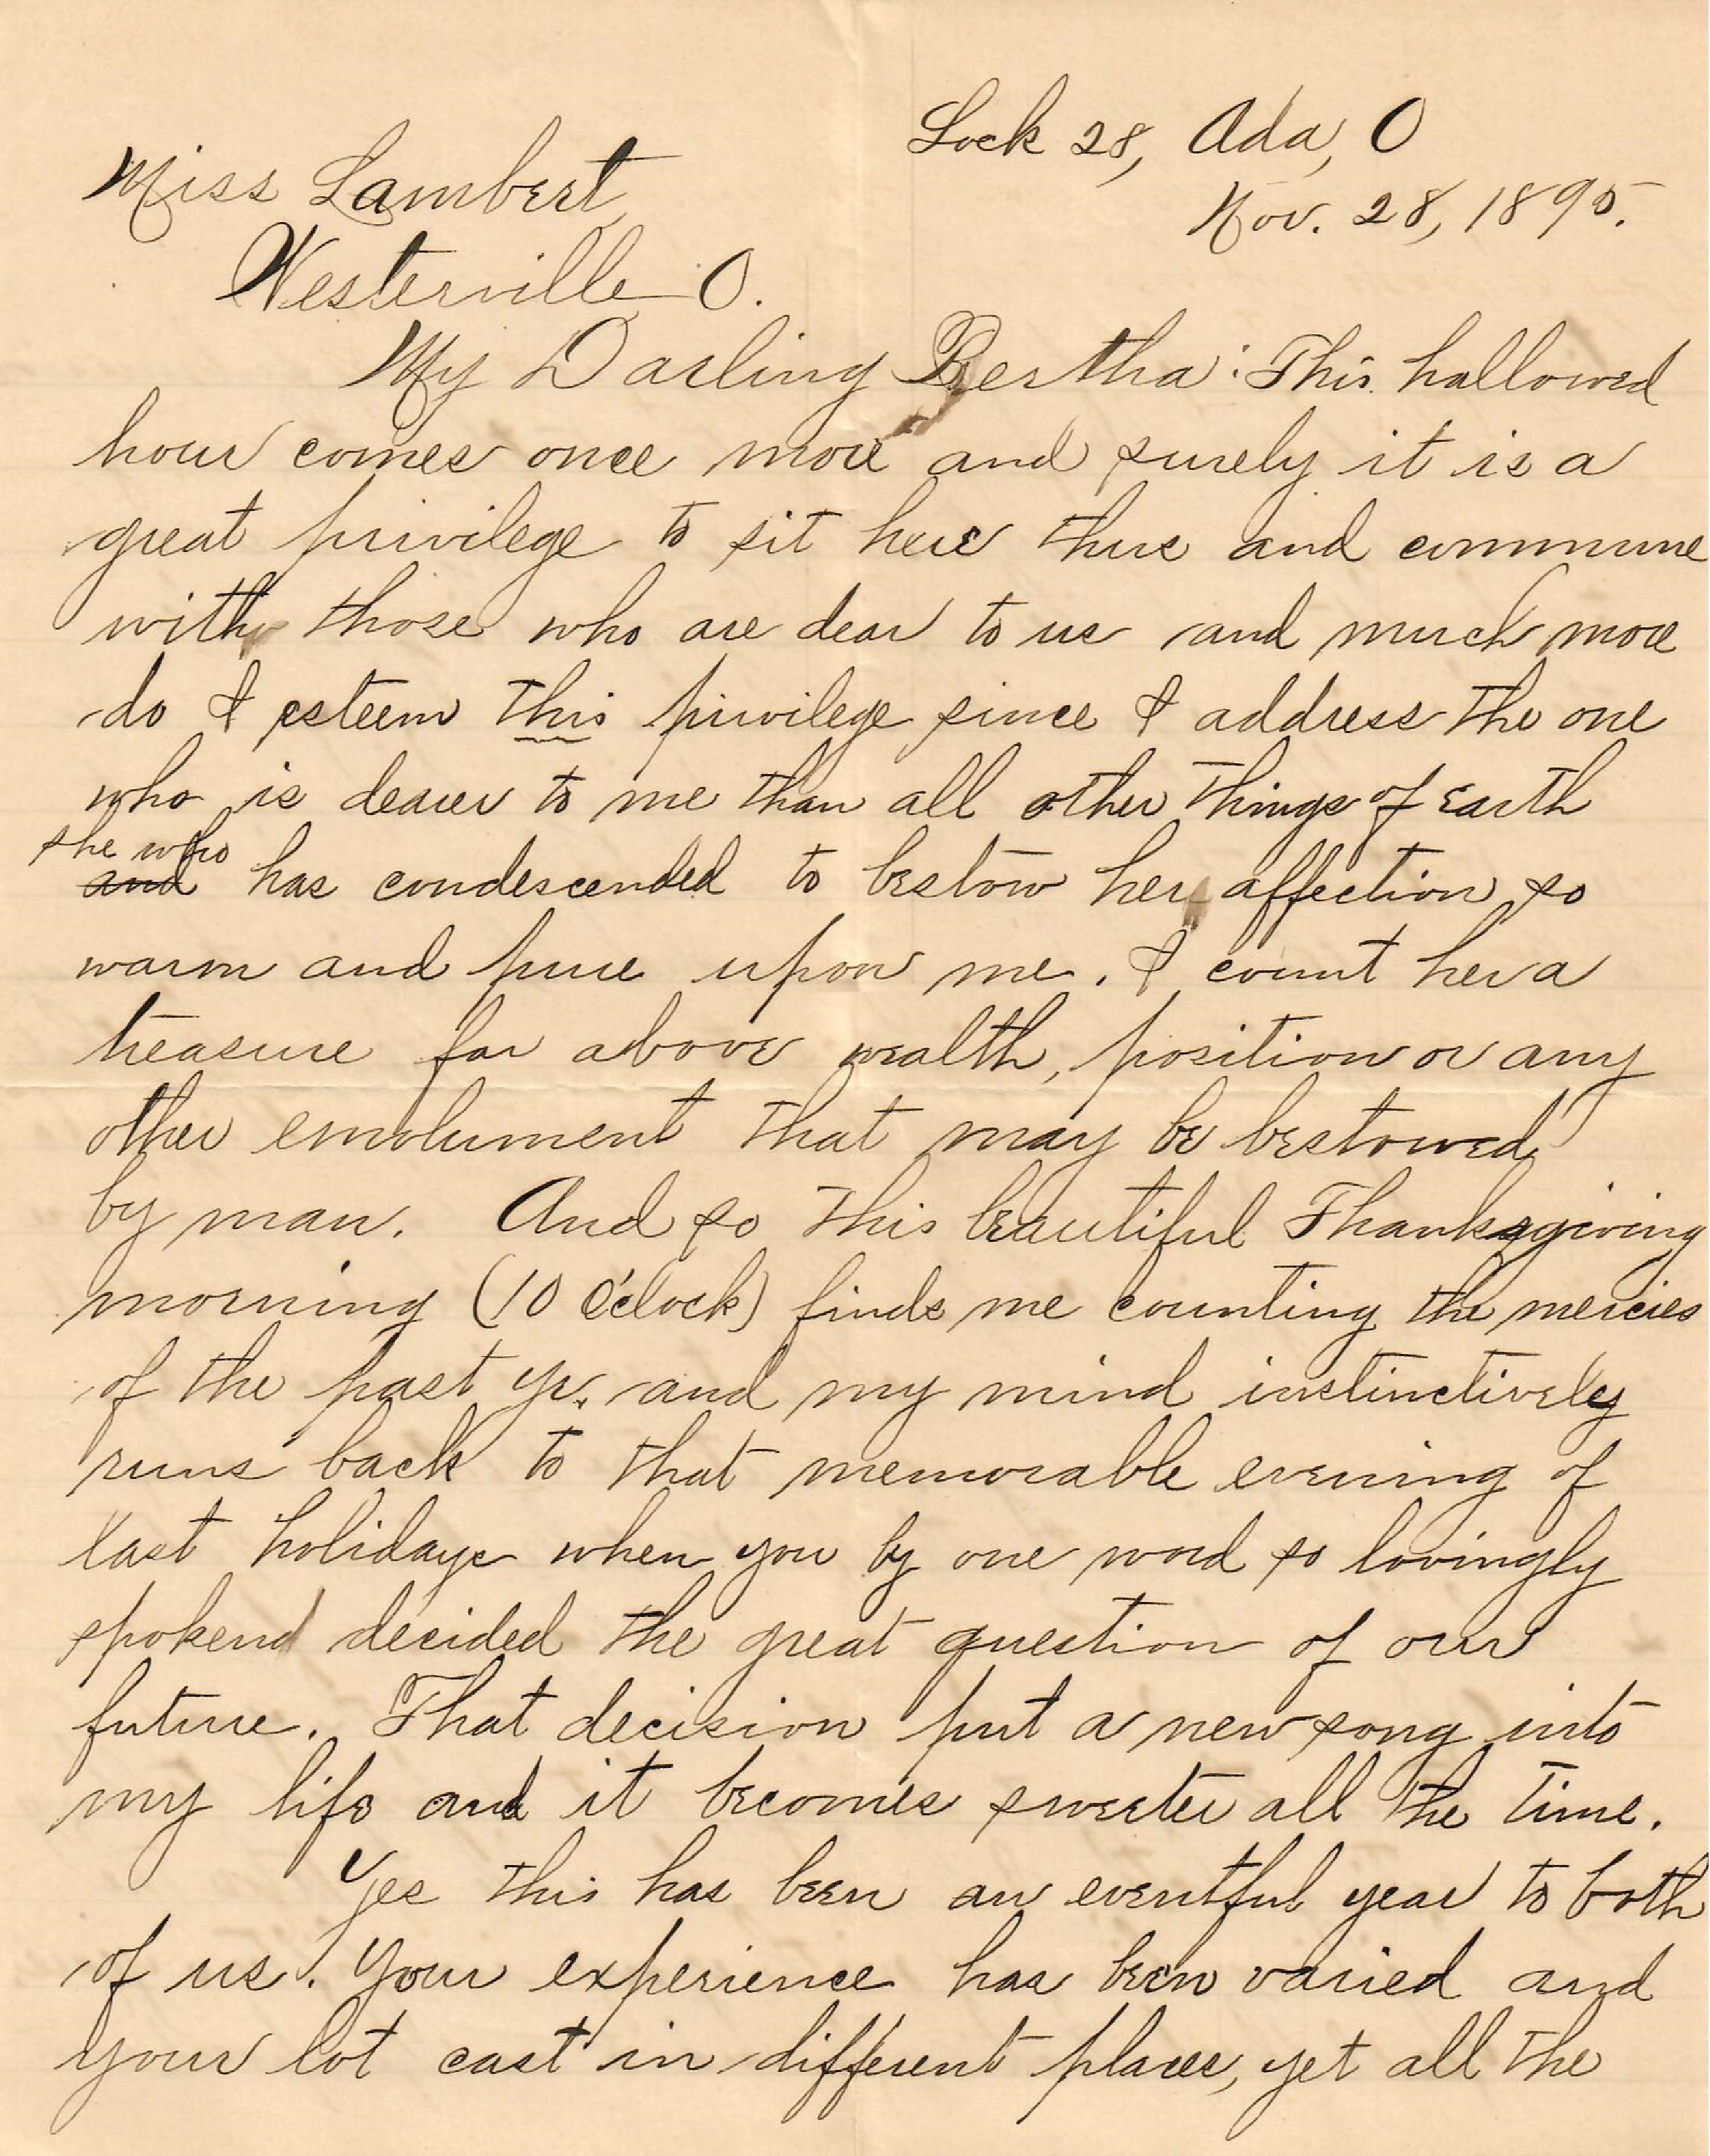 Lock 28, Ada, O
Nov. 28, 1895.
Miss Lambert,
Westerville O.
My Darling Bertha: This hallowed
hour comes once more and surely it is a
great privilege to sit here thus and commune
with those who are dear to us and much more
do I esteem this privilege since I address the one
who is dearer to me than all other things of Earth
she who
and has condescended to bestow her affection so
warm and pure upon me. I count her a
treasure far above wealth, position or any
other emolument that may be bestowed
by man. And so this beautiful Thanksgiving
morning (10 O'clock) finds me counting the mercies
of the past yr. and my mind instinctively
runs back to that memorable evening of
last holidays when you by one word so lovingly
spokend decided the great question of our
future. That decision put a new song into
my life and it becomes sweeter all the time.
Yes this has been an eventful year to both
of us. Your experience has been varied and
your lot cast in different places, yet all the